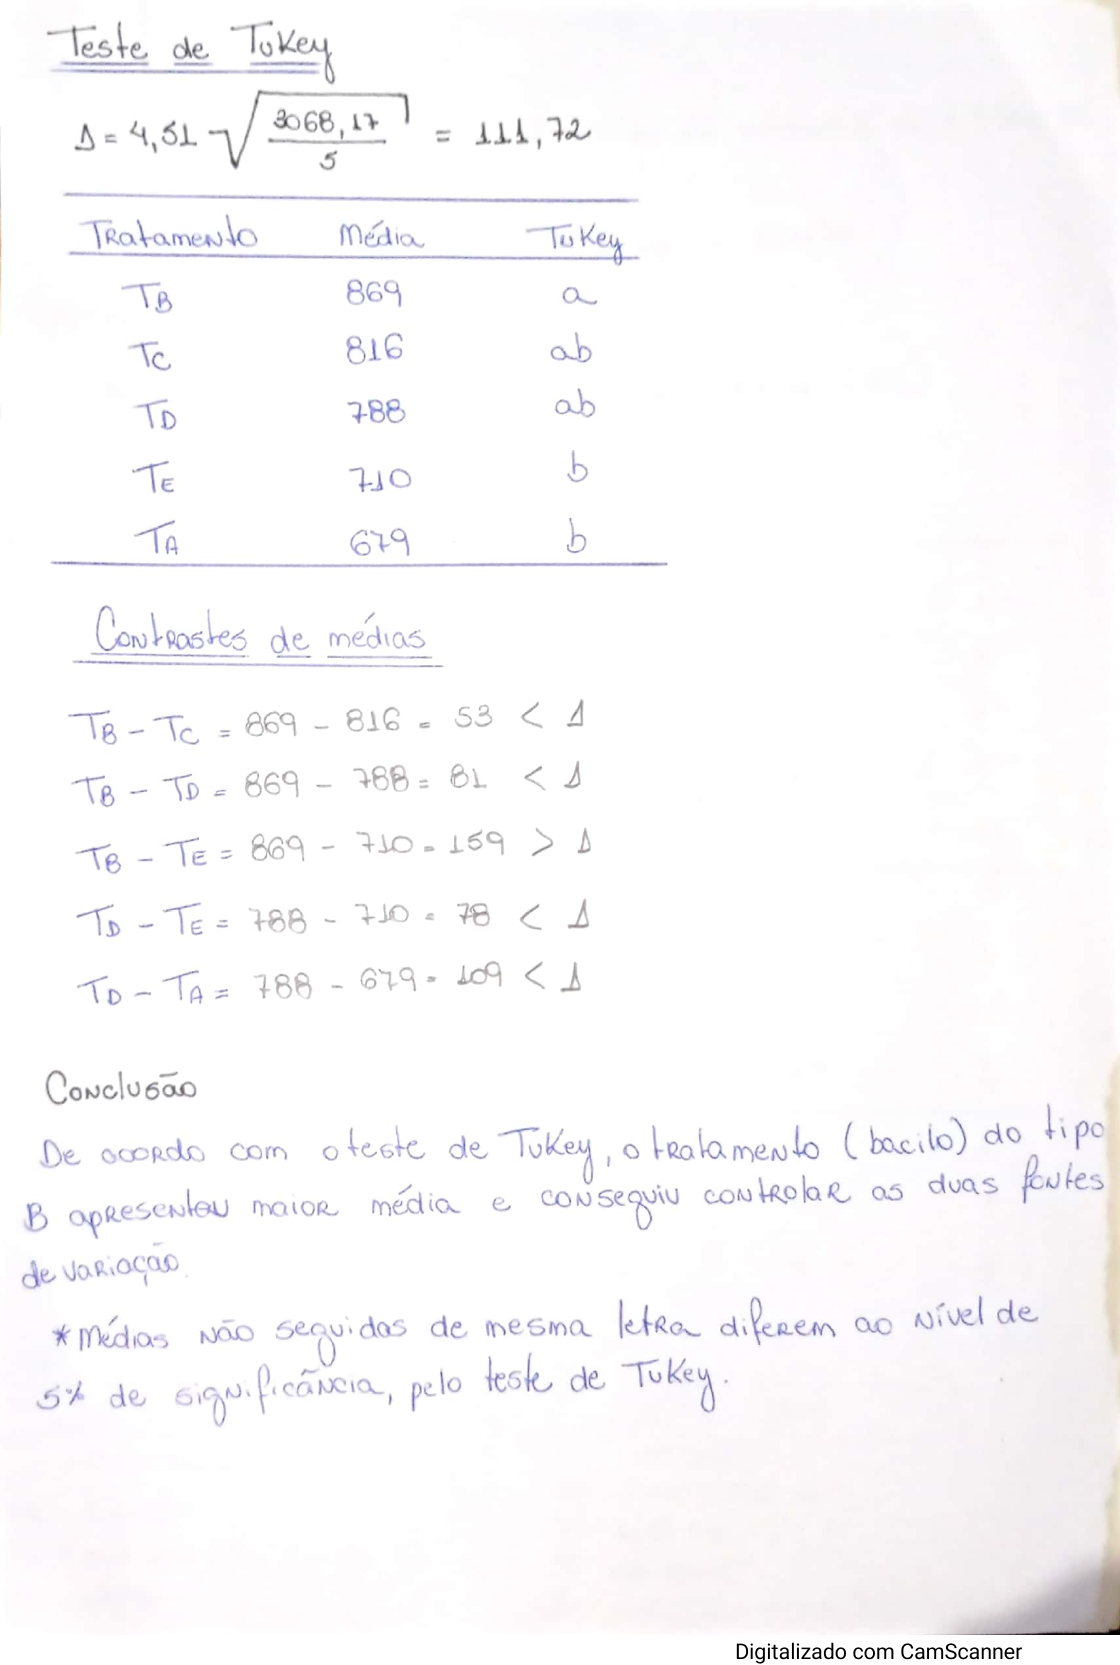 Teste de Tukey
Δ = 4,51 √(3068,17 / 5) = 111,72
Tratamento Média Tukey
TB 869 a
TC 816 ab
TD 788 ab
TE 710 b
TA 679 b
Contrastes de médias
TB - TC = 869 - 816 = 53 < Δ
TB - TD = 869 - 788 = 81 < Δ
TB - TE = 869 - 710 = 159 > Δ
TD - TE = 788 - 710 = 78 < Δ
TD - TA = 788 - 679 = 109 < Δ
Conclusão
De acordo com o teste de Tukey, o tratamento (bacilo) do tipo
B apresentou maior média e conseguiu controlar as duas fontes
de variação.
* Médias não seguidas de mesma letra diferem ao nível de
5% de significância, pelo teste de Tukey.
Digitalizado com CamScanner